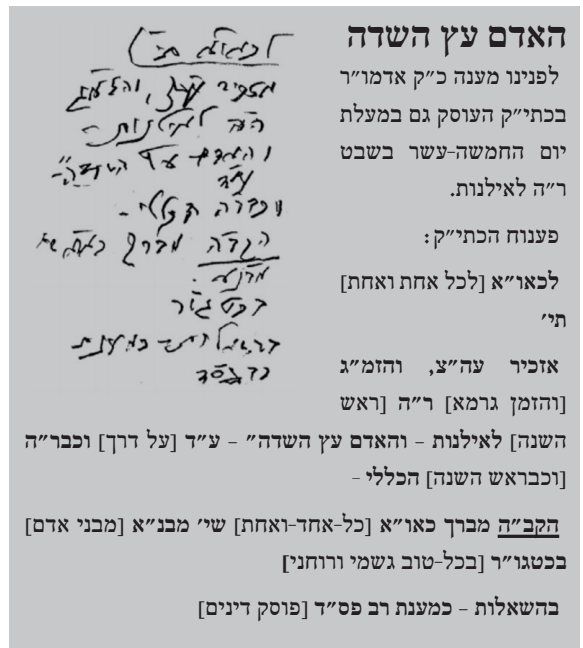 האדם עץ השדה
לפנינו מענה כ״ק אדמו״ר
בכתי״ק העוסק גם במעלת
יום החמשה-עשר בשבט
ר״ה לאילנות.
פענוח הכתי״ק:
לכאו״א [לכל אחת ואחת]
תי׳
אזכיר עה״צ, והזמ״ג
[והזמן גרמא] ר״ה [ראש
השנה] לאילנות – והאדם עץ השדה״ – ע״ד [על דרך] וכבר״ה
[וכבראש השנה] הכללי –
הקב״ה מברך כאו״א [כל-אחד-ואחת] שי׳ מבנ״א [מבני אדם]
בכטגו״ר [בכל-טוב גשמי ורוחני]
בהשאלות – כמענת רב פס״ד [פוסק דינים]
לכאו״א תי׳
אזכיר עה״צ, והזמ״ג
ר״ה לאילנות –
והאדם עץ השדה״ –
ע״ד
וכבר״ה הכללי –
הקב״ה מברך כאו״א שי׳
מבנ״א
בכטגו״ר
בהשאלות – כמענת
רב פס״ד